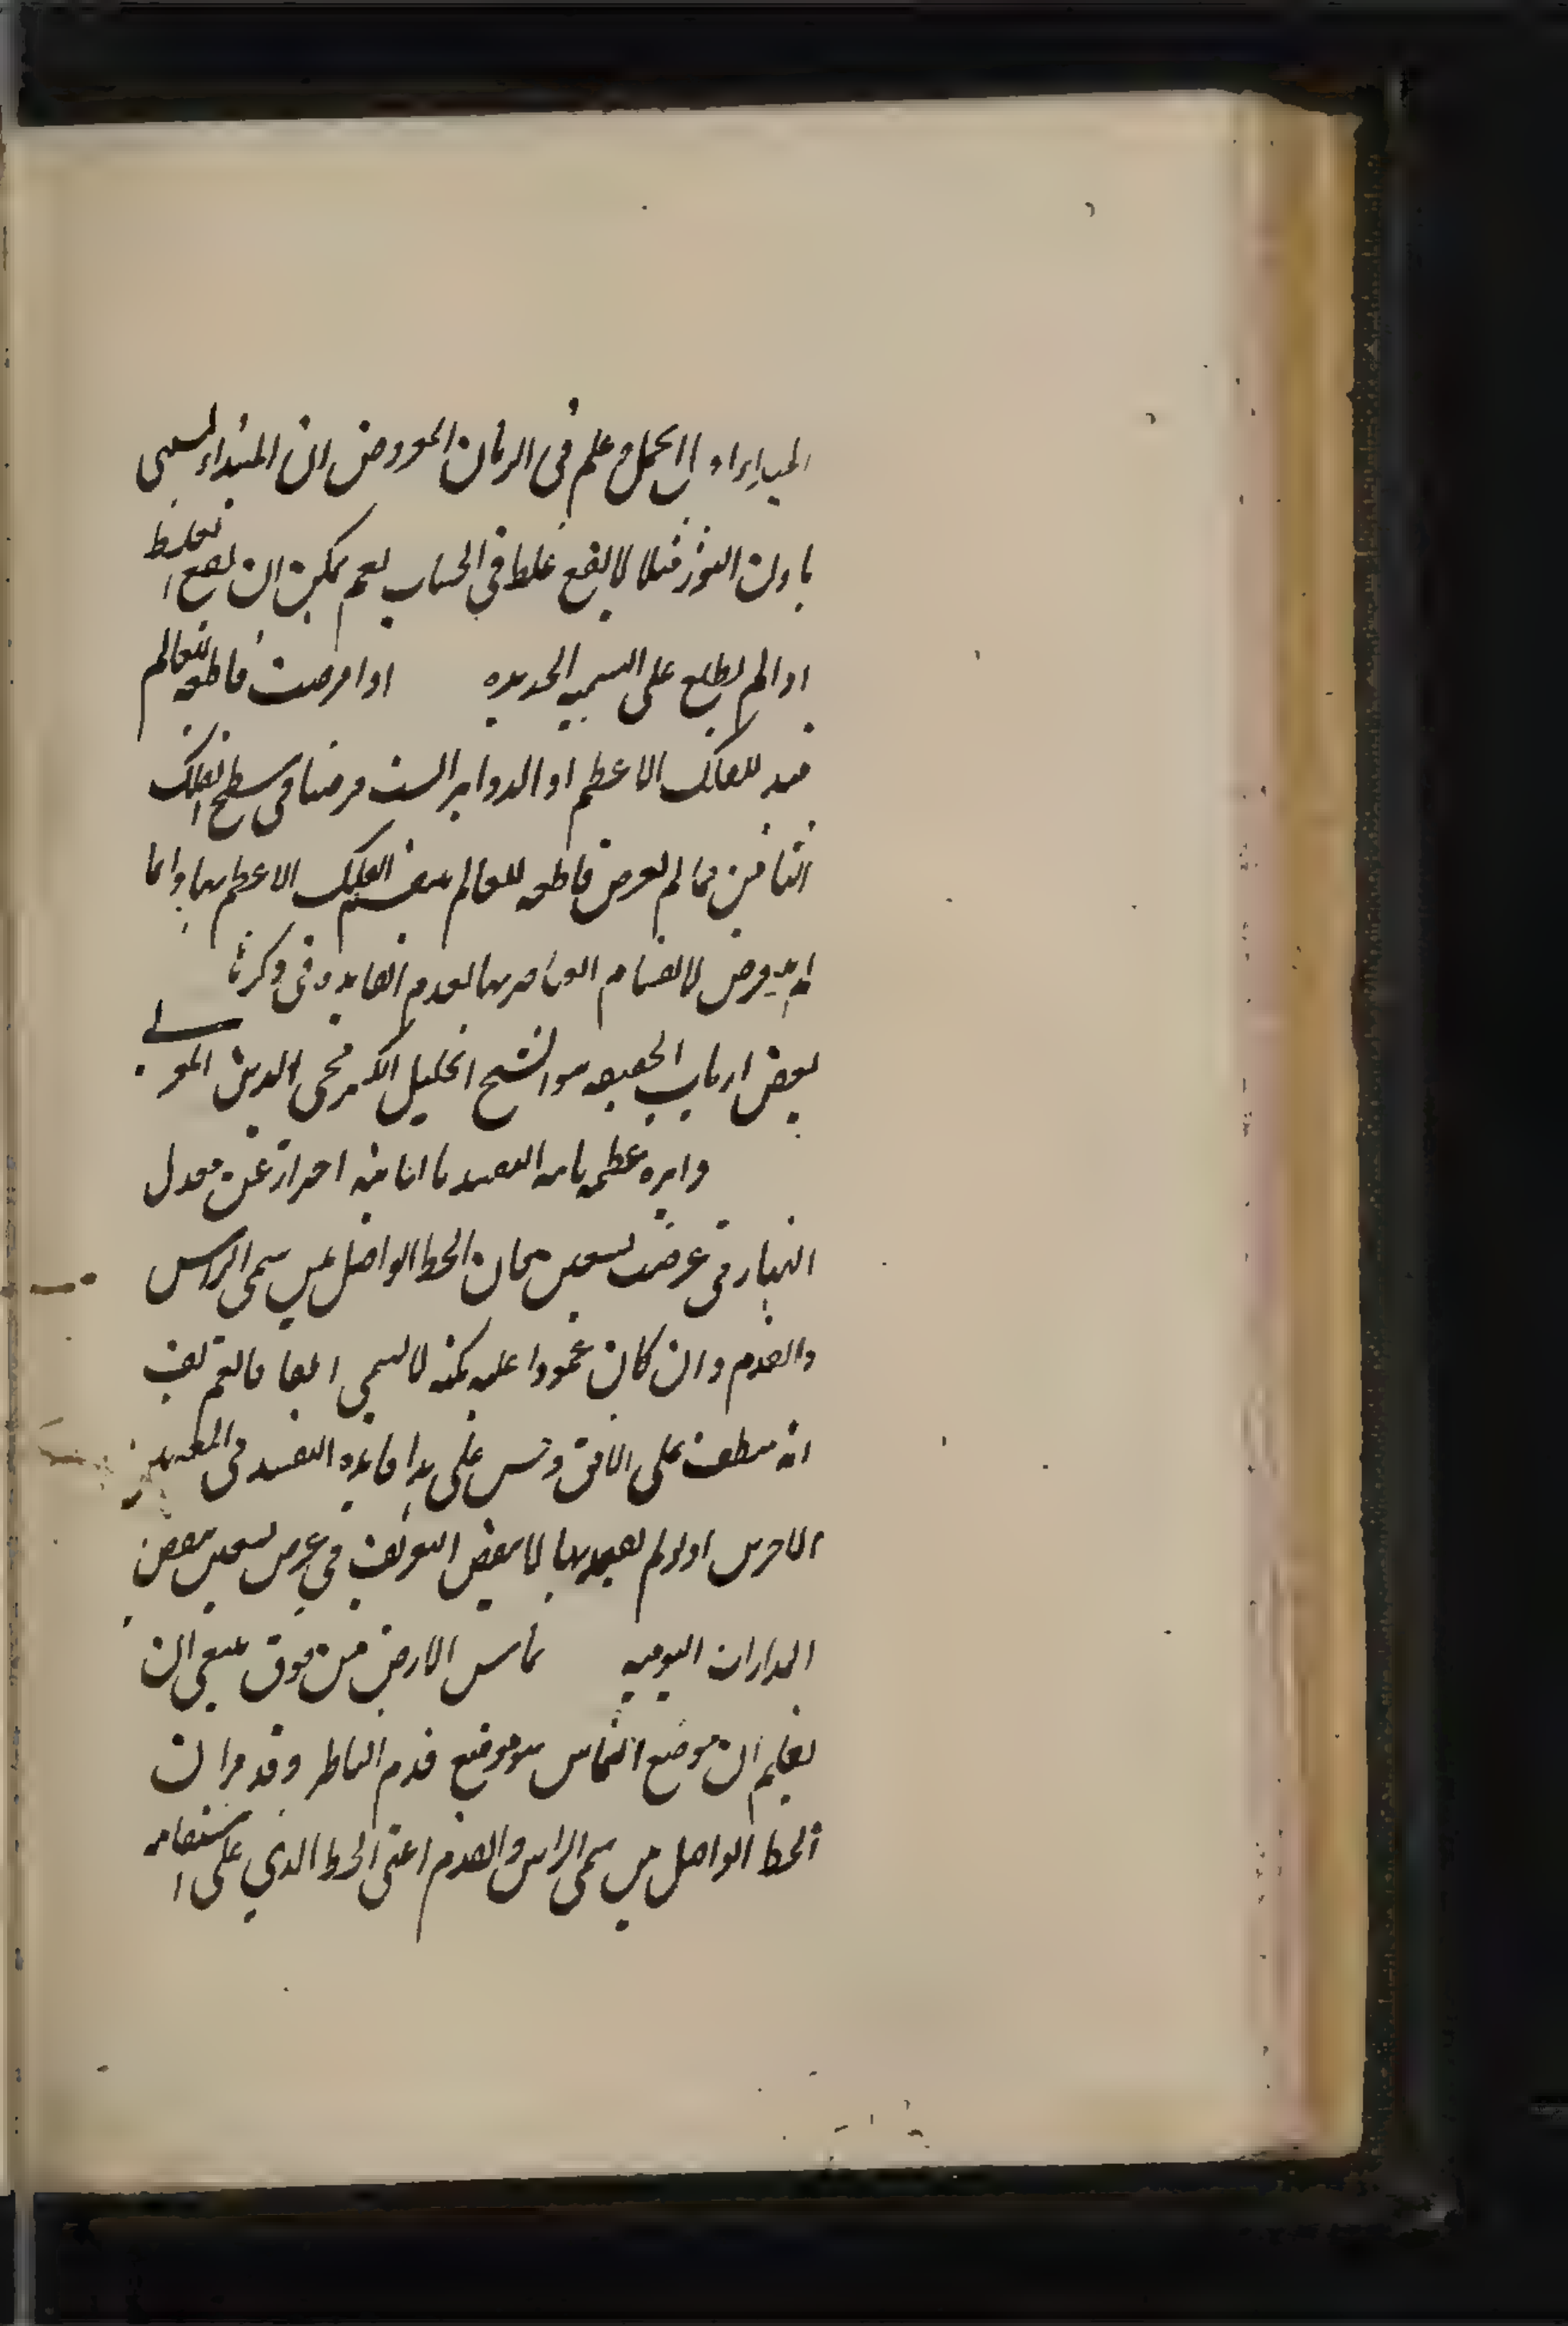 الميزان اول الحمل وعلم فى الزمان المفروض ان المبداء المسمى
باول الثور مثلا لا يقع غلط فى الحساب نعم يمكن ان يقع الغلط
اذا لم يطلع على التسمية الجديدة اذا فرضت قاطعة للعالم
قيد للفلك الاعظم اذ الدواير الست فرضنا فى سطح الفلك
الثامن فما لم تفرض قاطعة للعالم ينقسم الفلك الاعظم بها وانما
لم يتعرض لانقسام العناصر بها لعدم الفايدة فى ذكرنا
بعض ارباب الحقيقة هو الشيخ الجليل الكبير محى الدين المغربى
دايرة عظيمة ثابتة التقييد بالثابتة احتراز عن معدل
النهار فى عرض تسعين فان الخط الواصل بين سمتى الراس
والقدم وان كان عمودا عليه لكنه لا يسمى افقا فالتعريف
انه ينطبق على الافق وقس على هذا فائدة التقييد فى المقيدين
الاخرين اذ لو لم يقيد بها لانتقض التعريف فى عرض تسعين ببعض
المدارات اليومية تماس الارض من فوق ينبغى ان
يعلم ان موضع التماس هو موضع قدم الناظر وقد مر ان
الخط الواصل بين سمتى الراس والقدم اعنى الخط الذي على استقامة